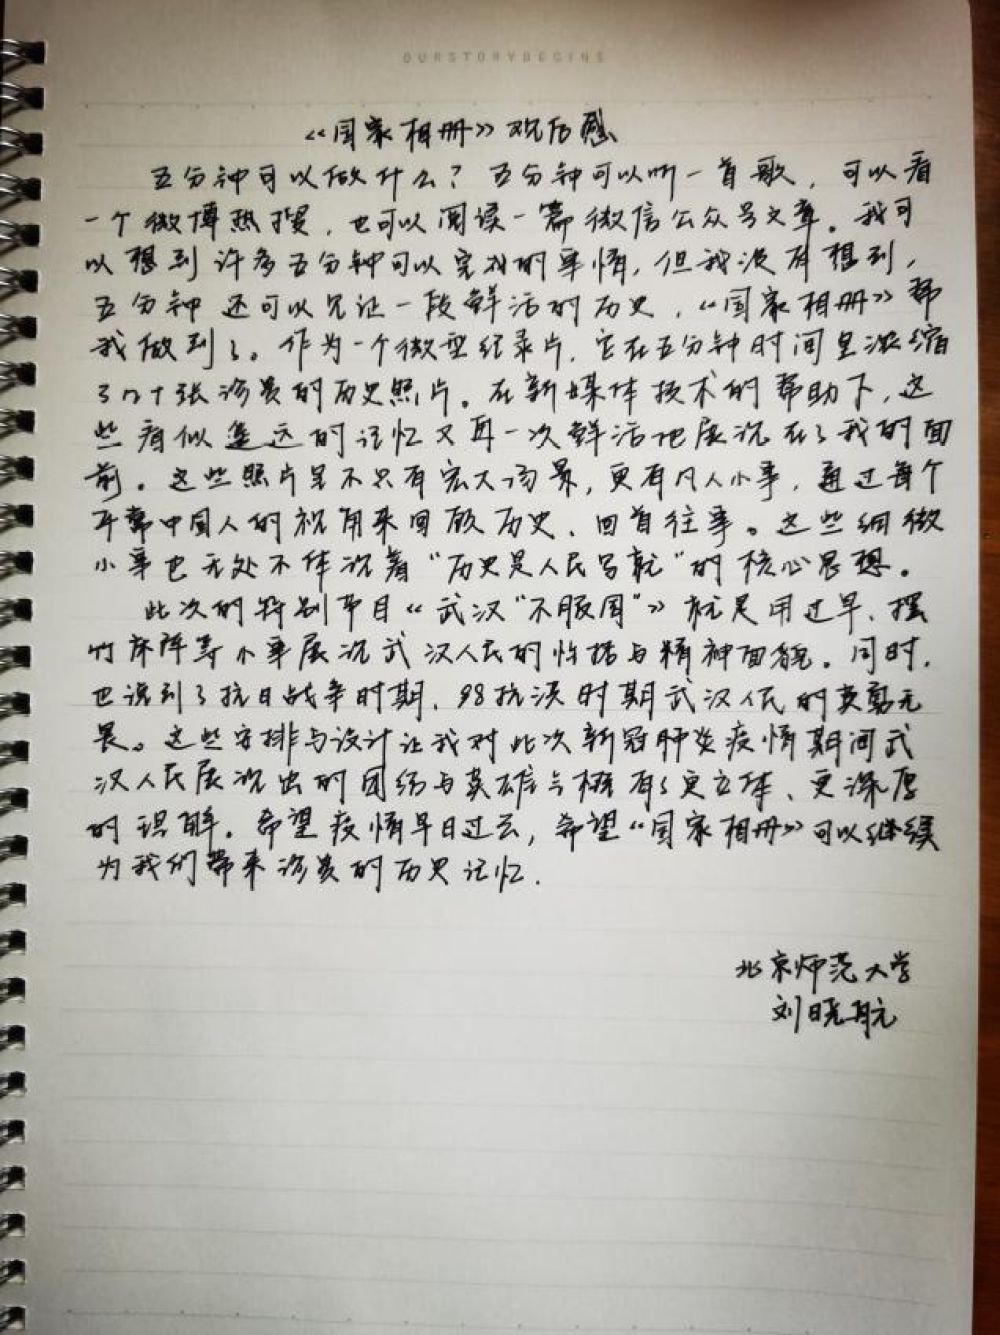 OURSTORYBEGINS
《国家相册》观后感
五分钟可以做什么？五分钟可以听一首歌，可以看
一个微博热搜，也可以阅读一篇微信公众号文章。我可
以想到许多五分钟可以完成的事情，但我没有想到，
五分钟还可以见证一段鲜活的历史，《国家相册》帮
我做到了。作为一个微型纪录片，它在五分钟时间里浓缩
了几十张珍贵的历史照片。在新媒体技术的帮助下，这
些看似遥远的记忆又再一次鲜活地展现在了我的面
前。这些照片里不只有宏大场景，更有凡人小事，通过每个
平常中国人的视角来回顾历史、回首往事。这些细微
小事也无处不体现着“历史是人民写就”的核心思想。
此次的特别节目《武汉“不服周”》就是用过早、摆
竹床阵等小事展现武汉人民的性格与精神面貌。同时，
也说到了抗日战争时期、98抗洪时期武汉人民的英勇无
畏。这些安排与设计让我对此次新冠肺炎疫情期间武
汉人民展现出的团结与英雄气概有了更立体、更深厚
的理解。希望疫情早日过去，希望《国家相册》可以继续
为我们带来珍贵的历史记忆．
北京师范大学
刘晓航